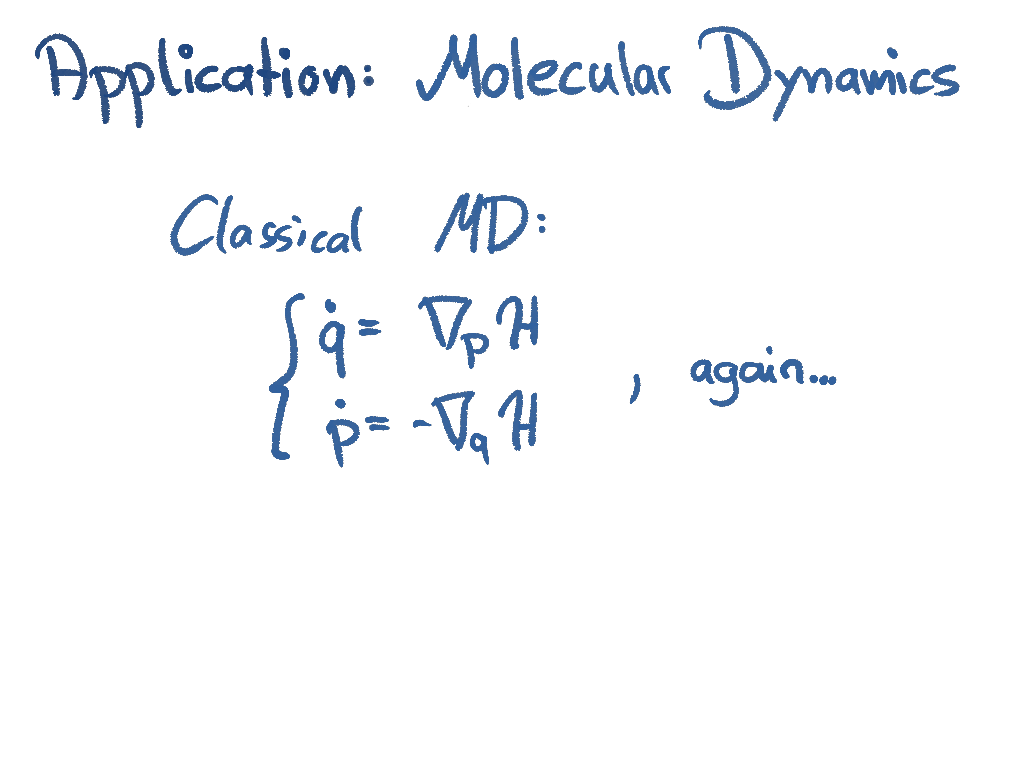 Application: Molecular Dynamics
Classical MD:
q̇ = ∇ₚ ℋ
ṗ = -∇_q ℋ
, again...